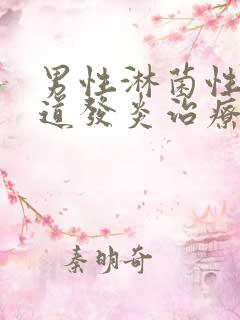 男性淋菌性
道發炎治療
秦明奇